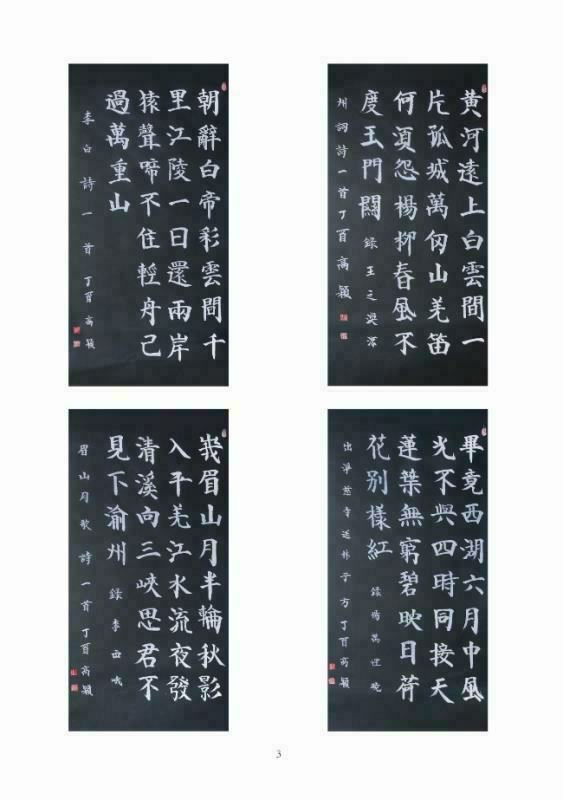 朝辭白帝彩雲間千
里江陵一日還兩岸
猿聲啼不住輕舟已
過萬重山
李白詩一首 丁酉高穎
黃河遠上白雲間一
片孤城萬仞山羌笛
何須怨楊柳春風不
度玉門關 錄王之渙涼
州詞詩一首丁酉高穎
峩眉山月半輪秋影
入平羌江水流夜發
清溪向三峽思君不
見下渝州 錄李白峨
眉山月歌詩一首丁酉高穎
畢竟西湖六月中風
光不與四時同接天
蓮葉無窮碧映日荷
花別樣紅 錄楊萬里曉
出淨慈寺送林子方丁酉高穎
3